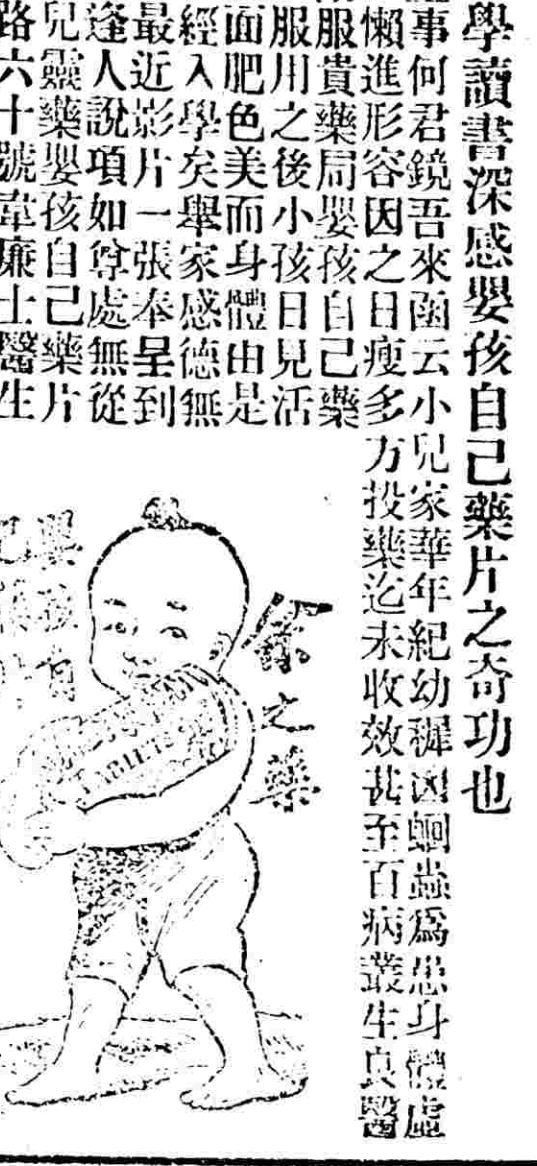 學讀書深感嬰孩自己藥片之奇功也
事何君鏡吾來函云小兒家華年紀幼穉因蛔蟲爲患身體虛
懶進形容因之日瘦多方投藥迄未收效甚至百病叢生良醫
服貴藥局嬰孩自己藥
服用之後小孩日見活
面肥色美而身體由是
經入學矣舉家感德無
最近影片一張奉呈到
逢人說項如尊處無從
兒靈藥嬰孩自己藥片
路六十號韋廉士醫生
余之藥
TABLETS